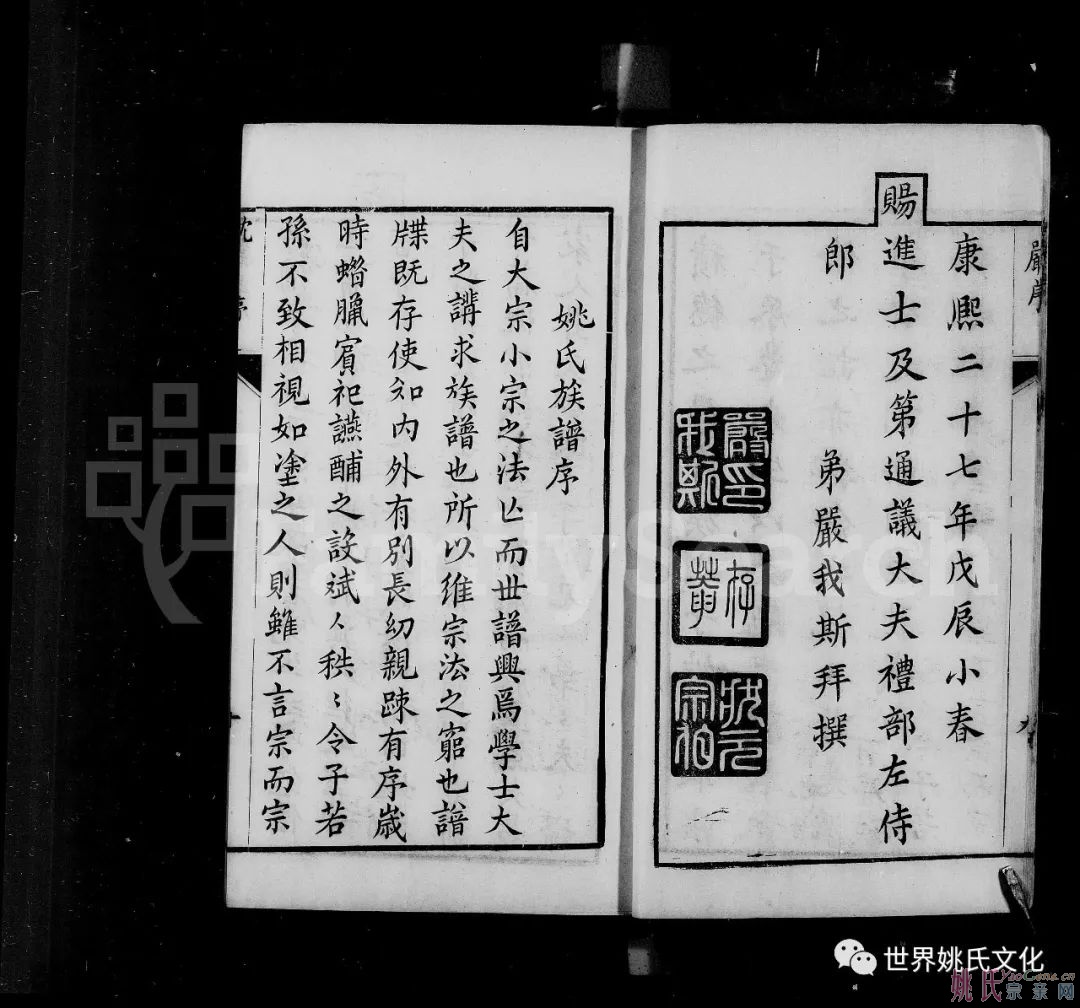 嚴序
康熙二十七年戊辰小春
賜進士及第通議大夫禮部左侍
郎　弟嚴我斯拜撰
嚴我斯印
存菴
狀元宗伯
九
姚氏族譜序
自大宗小宗之法亾而世譜興爲學士大
夫之講求族譜也所以維宗法之窮也譜
牒既存使知内外有别長幼親踈有序歲
時蜡臘賓祀讌酺之設斌〻秩〻令子若
孫不致相視如塗之人則雖不言宗而宗
沈序
一
FamilySearch
世界姚氏文化
姚氏宗亲网
YaoGens.cn